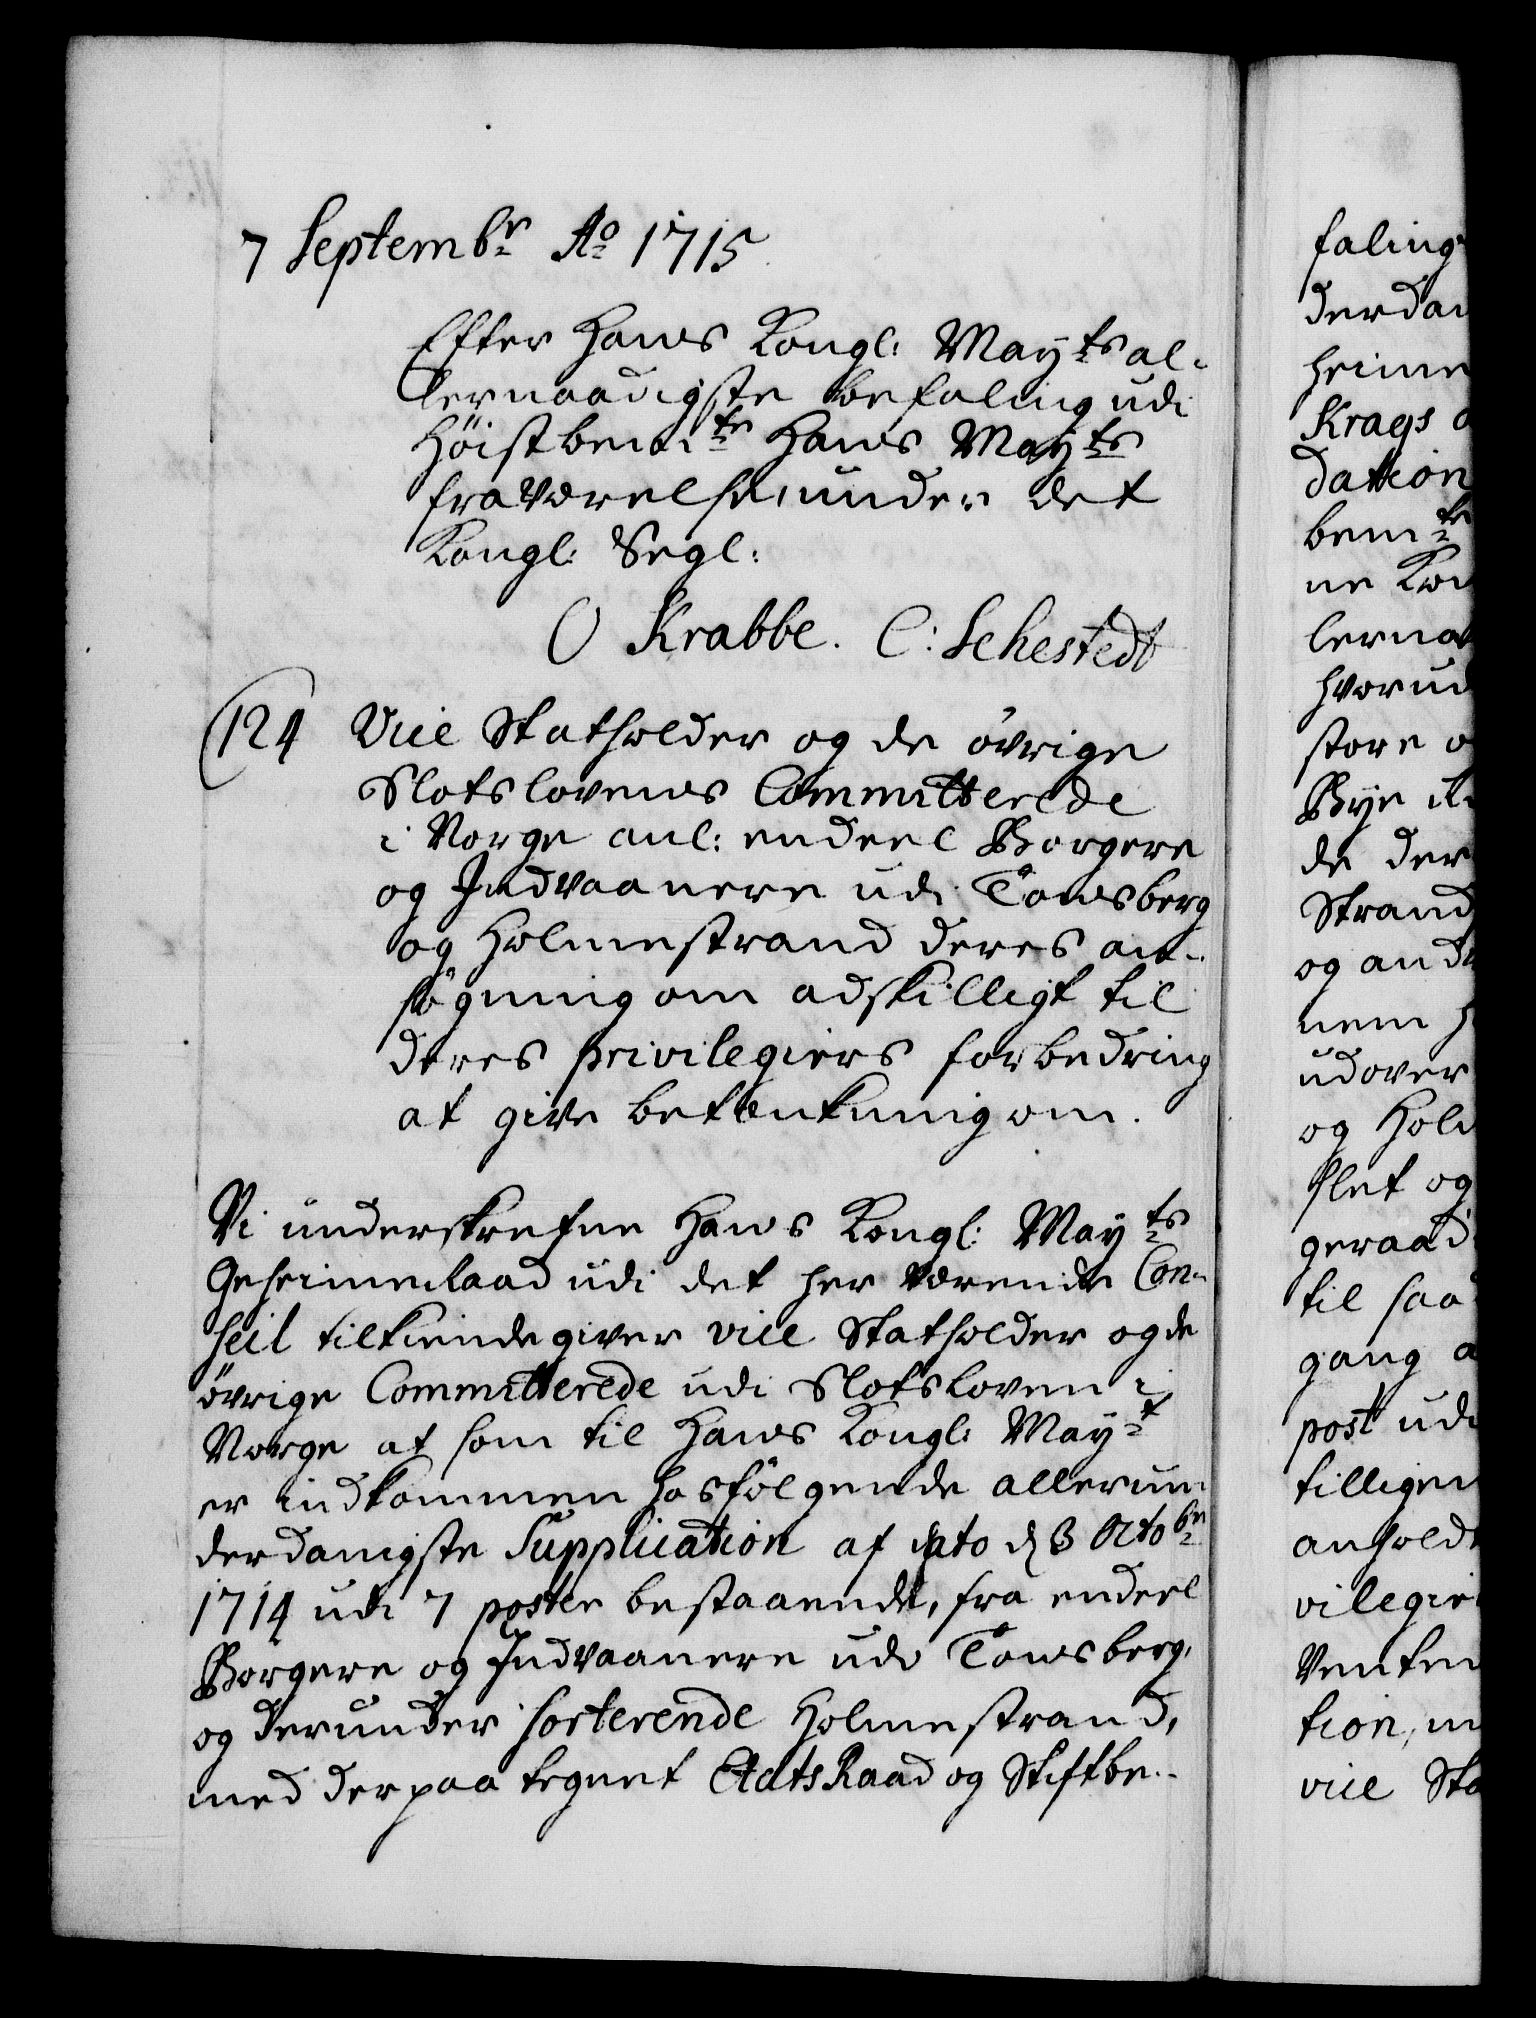 7 Septembr Ao 1715
Efter Hans Kongl: Mayts al-
lernaadigste befaling udi
Höistbemte Hans Mayts
fraværelse, under det
Kongl: Segl:
O Krabbe. C: Sehestedt
(124 Vice Statholder og de övrige
Slotslovens Committerede
i Norge anl: endeel Borgere
og Indvaanere udi Tönsberg
og Holmestrand deres an-
sögning om adskilligt til
deres privilegiers forbedring
at give betenkning om.
Vi underskrefne Hans Kongl: Mayts
Geheimeraad udi det her værende Con-
seil tilkiendegiver vice Statholder og de
övrige Committerede udi Slotsloven i
Norge at som til Hans Kongl: Mayt
er indkommen hosfölgende allerun-
derdanigste Supplication af dato d 3 Octobr
1714 udi 7 poster bestaaende, fra endeel
Borgere og Indvaanere udi Tönsberg,
og derunder sorterende Holmestrand,
med derpaa tegnet EtatsRaad og Stiftbe-
faling
derdan
heime
Krags
dation
bemte
ne Kon
lerna
hvorud
store
Bye
de der
Strand
og andr
nem
udover
og Hold
slet og
geraad
til saa
gang
post udi
tilligem
anhold
vilegie
Venten
tion, m
vice Sta